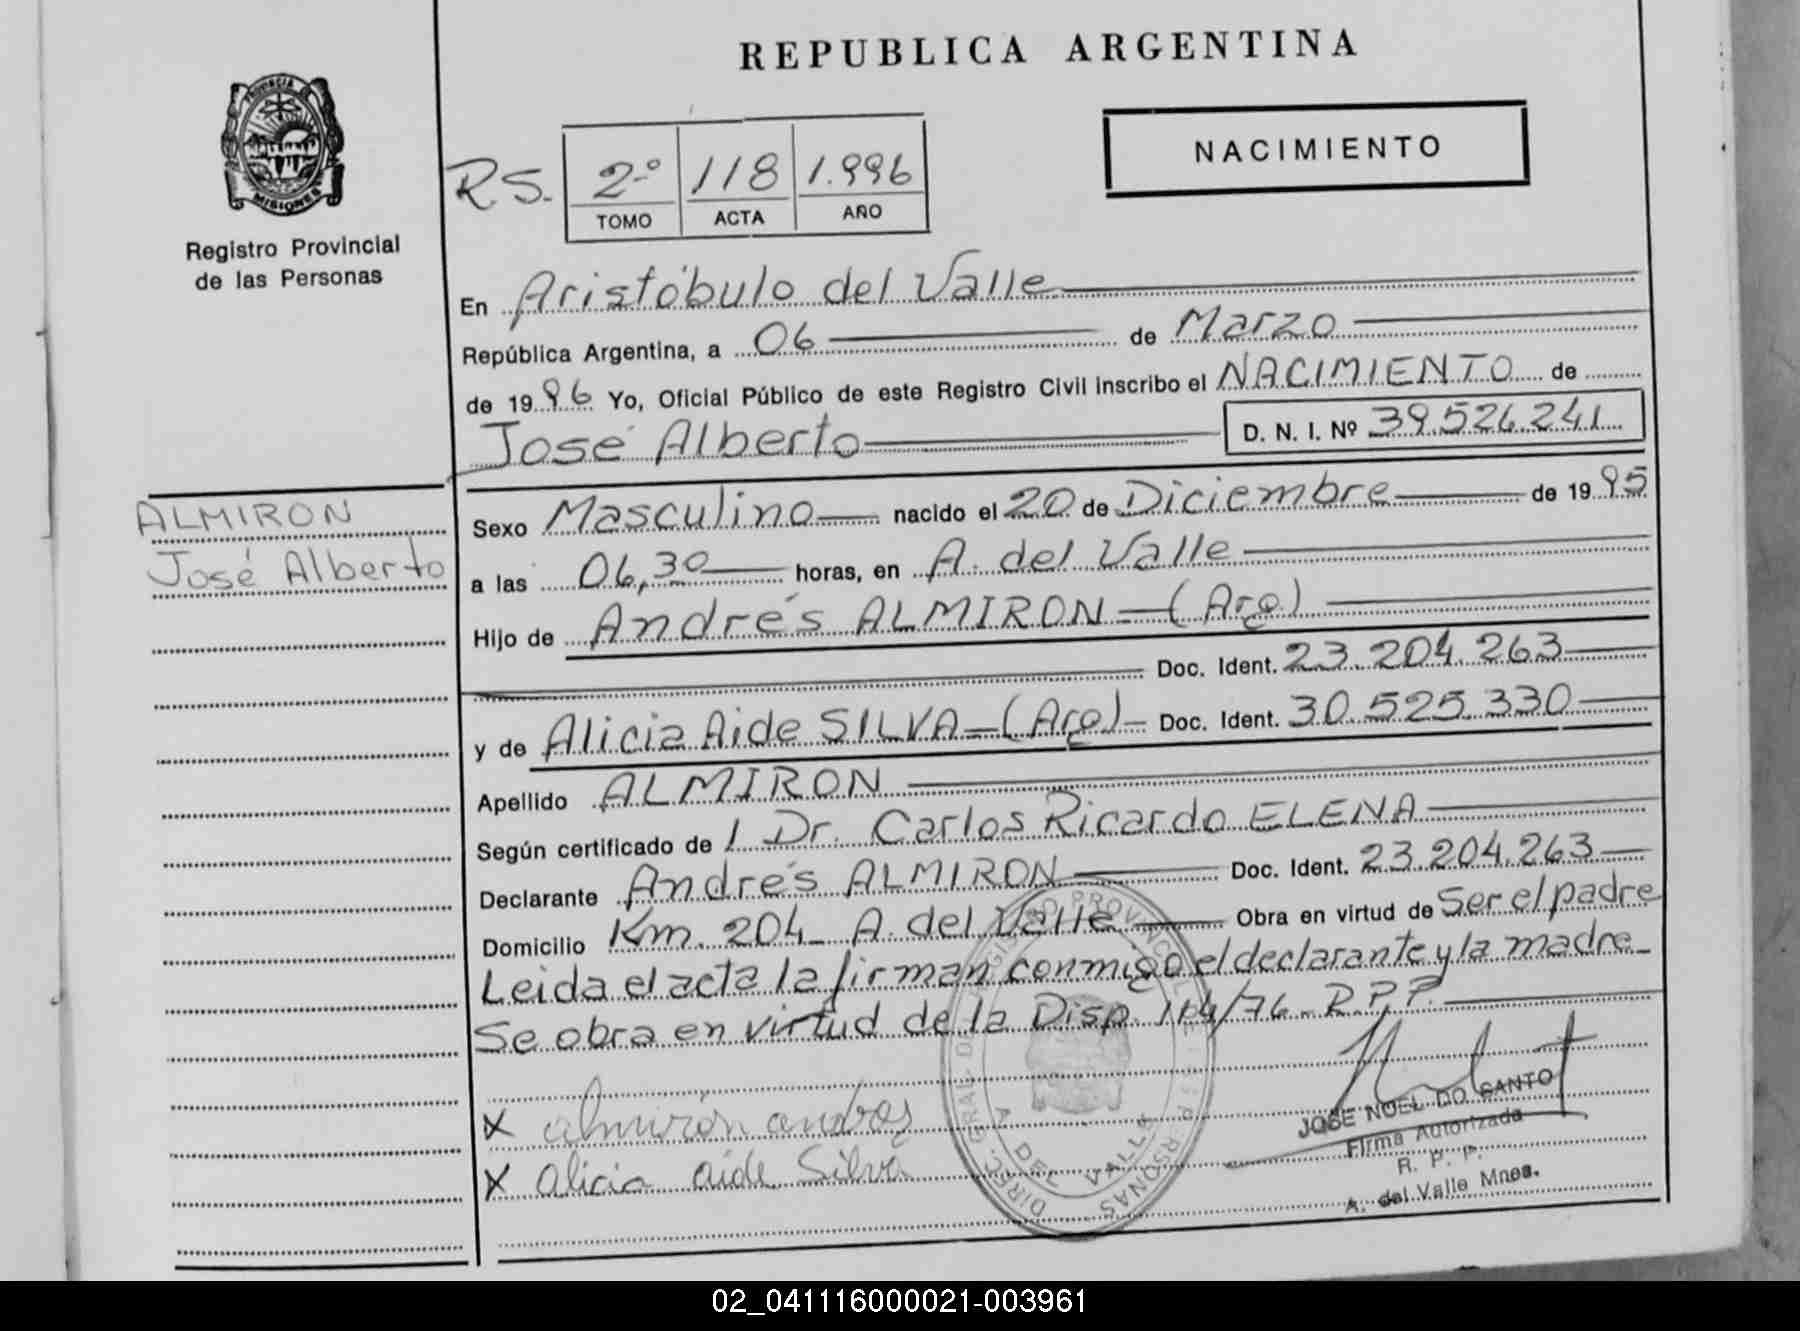 REPUBLICA ARGENTINA
PROVINCIA DE
MISIONES
Registro Provincial
de las Personas
NACIMIENTO
R.S. 2º 118 1.996
TOMO ACTA AÑO
En Aristóbulo del Valle
República Argentina, a 06 de Marzo
de 1996 Yo, Oficial Público de este Registro Civil inscribo el NACIMIENTO de
José Alberto D. N. I. Nº 39.526.241
ALMIRON
José Alberto
Sexo Masculino nacido el 20 de Diciembre de 1995
a las 06,30 horas, en A. del Valle
Hijo de Andrés ALMIRON - (Arg)
Doc. Ident. 23.204.263
y de Alicia Aide SILVA - (Arg) Doc. Ident. 30.525.330
Apellido ALMIRON
Según certificado de / Dr. Carlos Ricardo ELENA
Declarante Andrés ALMIRON Doc. Ident. 23.204.263
Domicilio Km. 204 A. del Valle Obra en virtud de Ser el padre
Leida el acta la firman conmigo el declarante y la madre
Se obra en virtud de la Disp. 114/76 R.P.P.
X almirón andres
X alicia aide Silva
A. DEL VALLE
JOSE NOEL DO SANTO
Firma Autorizada
R. P. P.
A. del Valle Mnes.
02_041116000021-003961